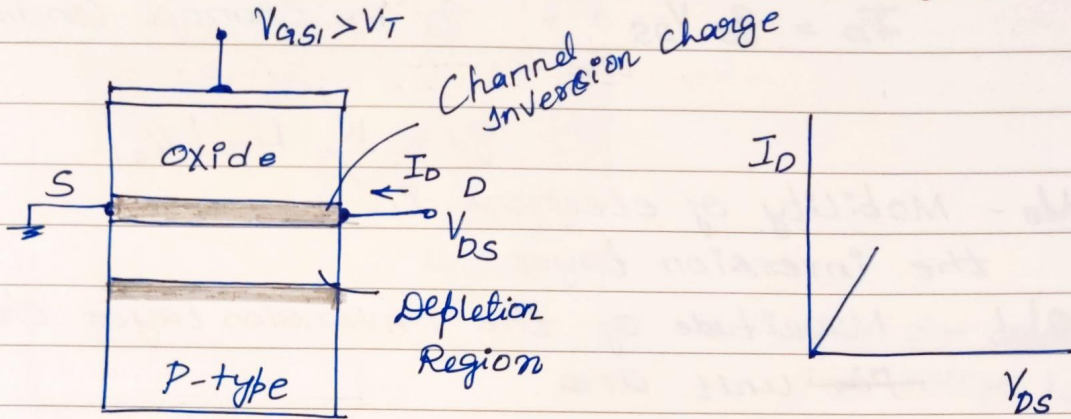 V_GS1 > V_T
Channel
Inversion charge
oxide
S
I_D
D
V_DS
Depletion
Region
P-type
I_D
V_DS